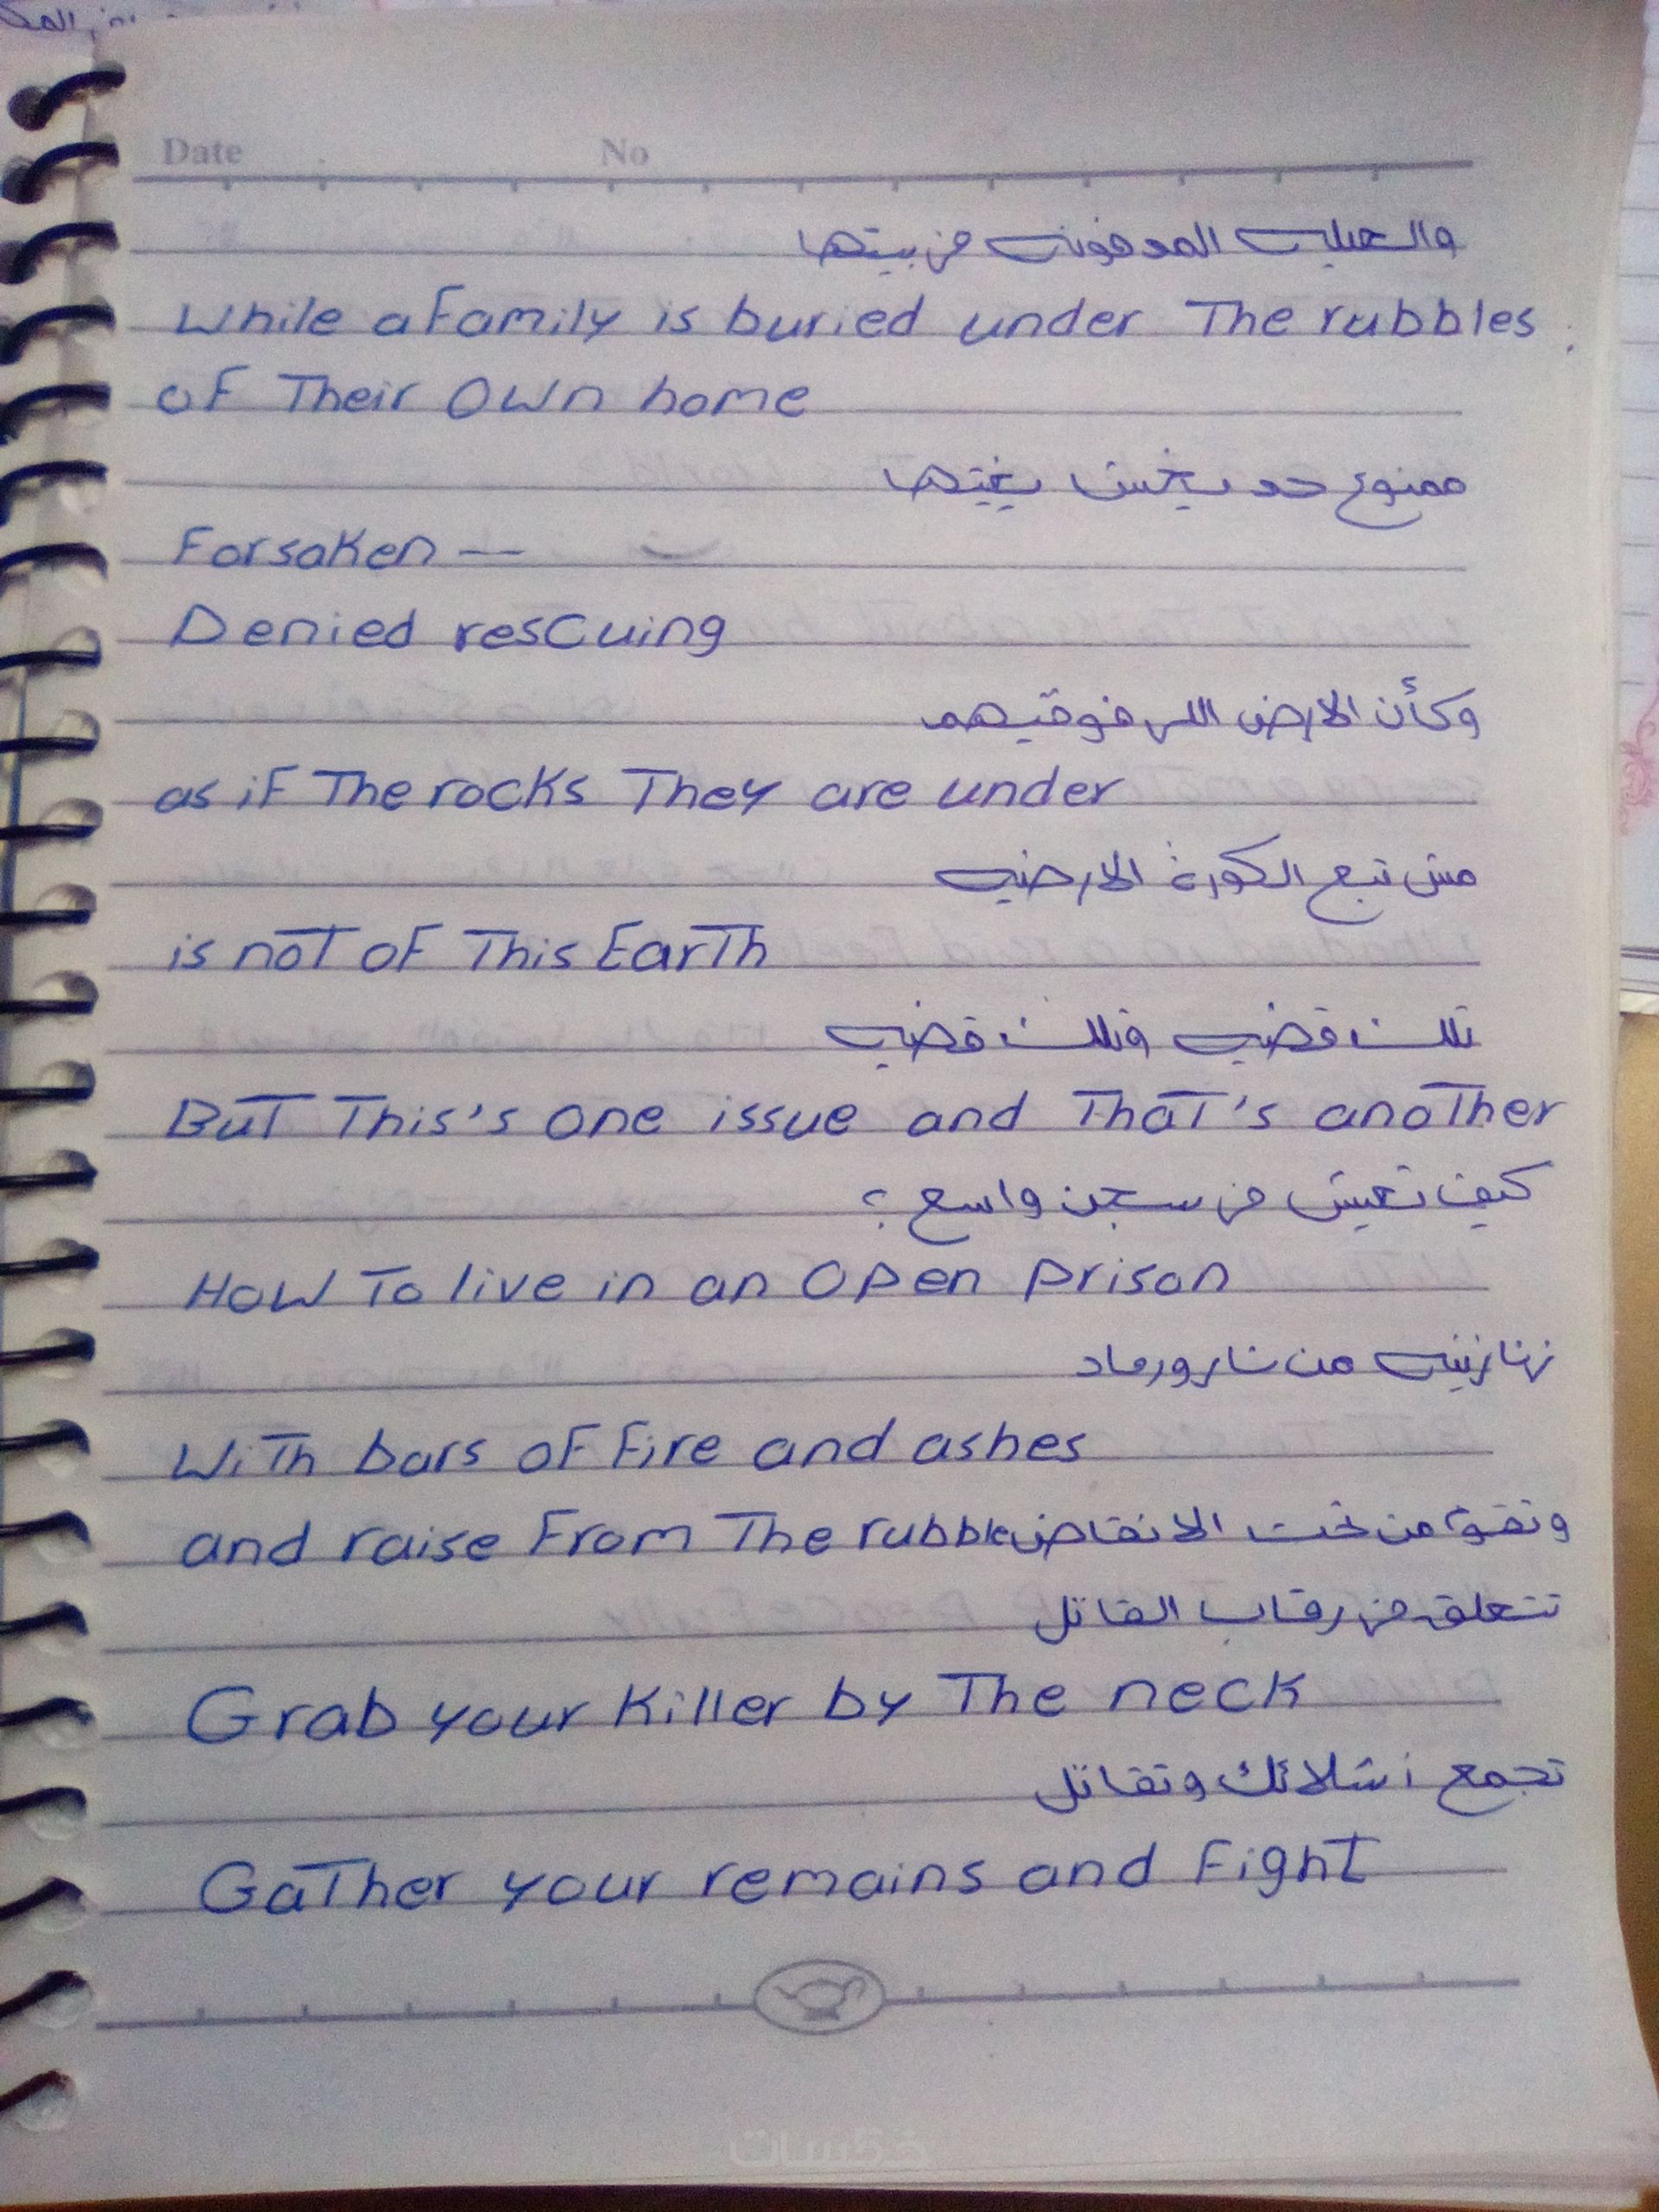 Date No
والعيله المدفونه في بيتها
While a Family is buried under The rubbles
of Their own home
ممنوع حد يخش يغيتها
Forsaken —
Denied rescuing
وكأن الارض اللى فوقيهم
as if The rocks They are under
مش تبع الكورة الارضيه
is not of This Earth
تلك قضيه وتلك قضيه
But This's one issue and That's another
كيف تعيش في سجن واسع ؟
How To live in an open prison
زنازينه من نار ورماد
With bars of Fire and ashes
and raise From The rubble وتقوم من تحت الانقاض
تتعلق في رقاب القاتل
Grab your Killer by The neck
تجمع أشلائك وتقاتل
Gather your remains and Fight
خمسات